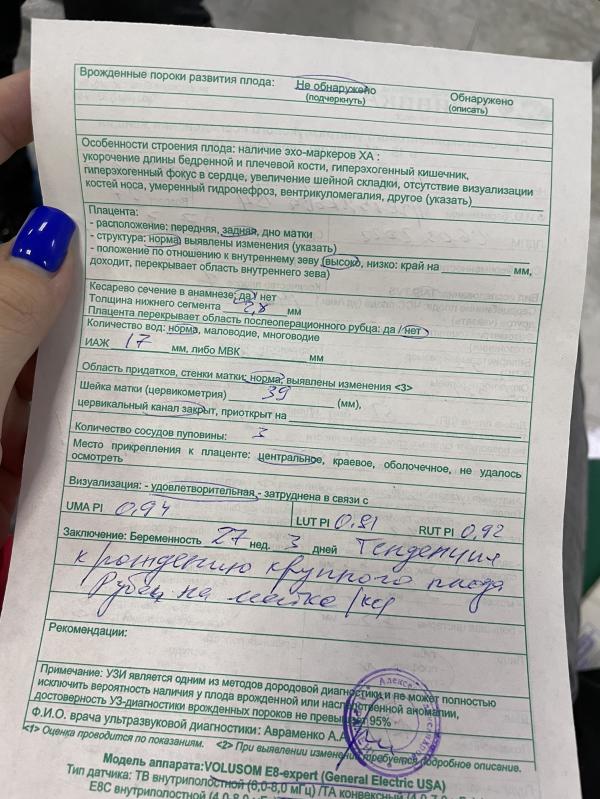 Врожденные пороки развития плода: Не обнаружено Обнаружено
(подчеркнуть) (описать)
Особенности строения плода: наличие эхо-маркеров ХА :
укорочение длины бедренной и плечевой кости, гиперэхогенный кишечник,
гиперэхогенный фокус в сердце, увеличение шейной складки, отсутствие визуализации
костей носа, умеренный гидронефроз, вентрикуломегалия, другое (указать)
Плацента:
- расположение: передняя, задняя, дно матки
- структура: норма, выявлены изменения (указать)
- положение по отношению к внутреннему зеву (высоко, низко: край на мм,
доходит, перекрывает область внутреннего зева)
Кесарево сечение в анамнезе: да/ нет
Толщина нижнего сегмента 2,8 мм
Плацента перекрывает область послеоперационного рубца: да / нет
Количество вод: норма, маловодие, многоводие
ИАЖ 17 мм, либо МВК мм
Область придатков, стенки матки: норма, выявлены изменения <3>
Шейка матки (цервикометрия) 39 (мм),
цервикальный канал закрыт, приоткрыт на
Количество сосудов пуповины: 3
Место прикрепления к плаценте: центральное, краевое, оболочечное, не удалось
осмотреть
Визуализация: - удовлетворительная - затруднена в связи с
UMA PI 0,94 LUT PI 0,81 RUT PI 0,92
Заключение: Беременность 27 нед. 3 дней Тенденция
к рождению крупного плода
Рубец на матке
Рекомендации:
Примечание: УЗИ является одним из методов дородовой диагностики и не может полностью
исключить вероятность наличия у плода врожденной или наследственной аномалии,
достоверность УЗ-диагностики врожденных пороков не превышает 95%
Ф.И.О. врача ультразвуковой диагностики: Авраменко А.А.
<1> Оценка проводится по показаниям. <2> При выявлении изменений требуется подробное описание.
Модель аппарата:VOLUSOM E8-expert (General Electric USA)
Тип датчика: ТВ внутриполостной (6,0-8,0 мГц) /ТА конвексный
E8C внутриполостной